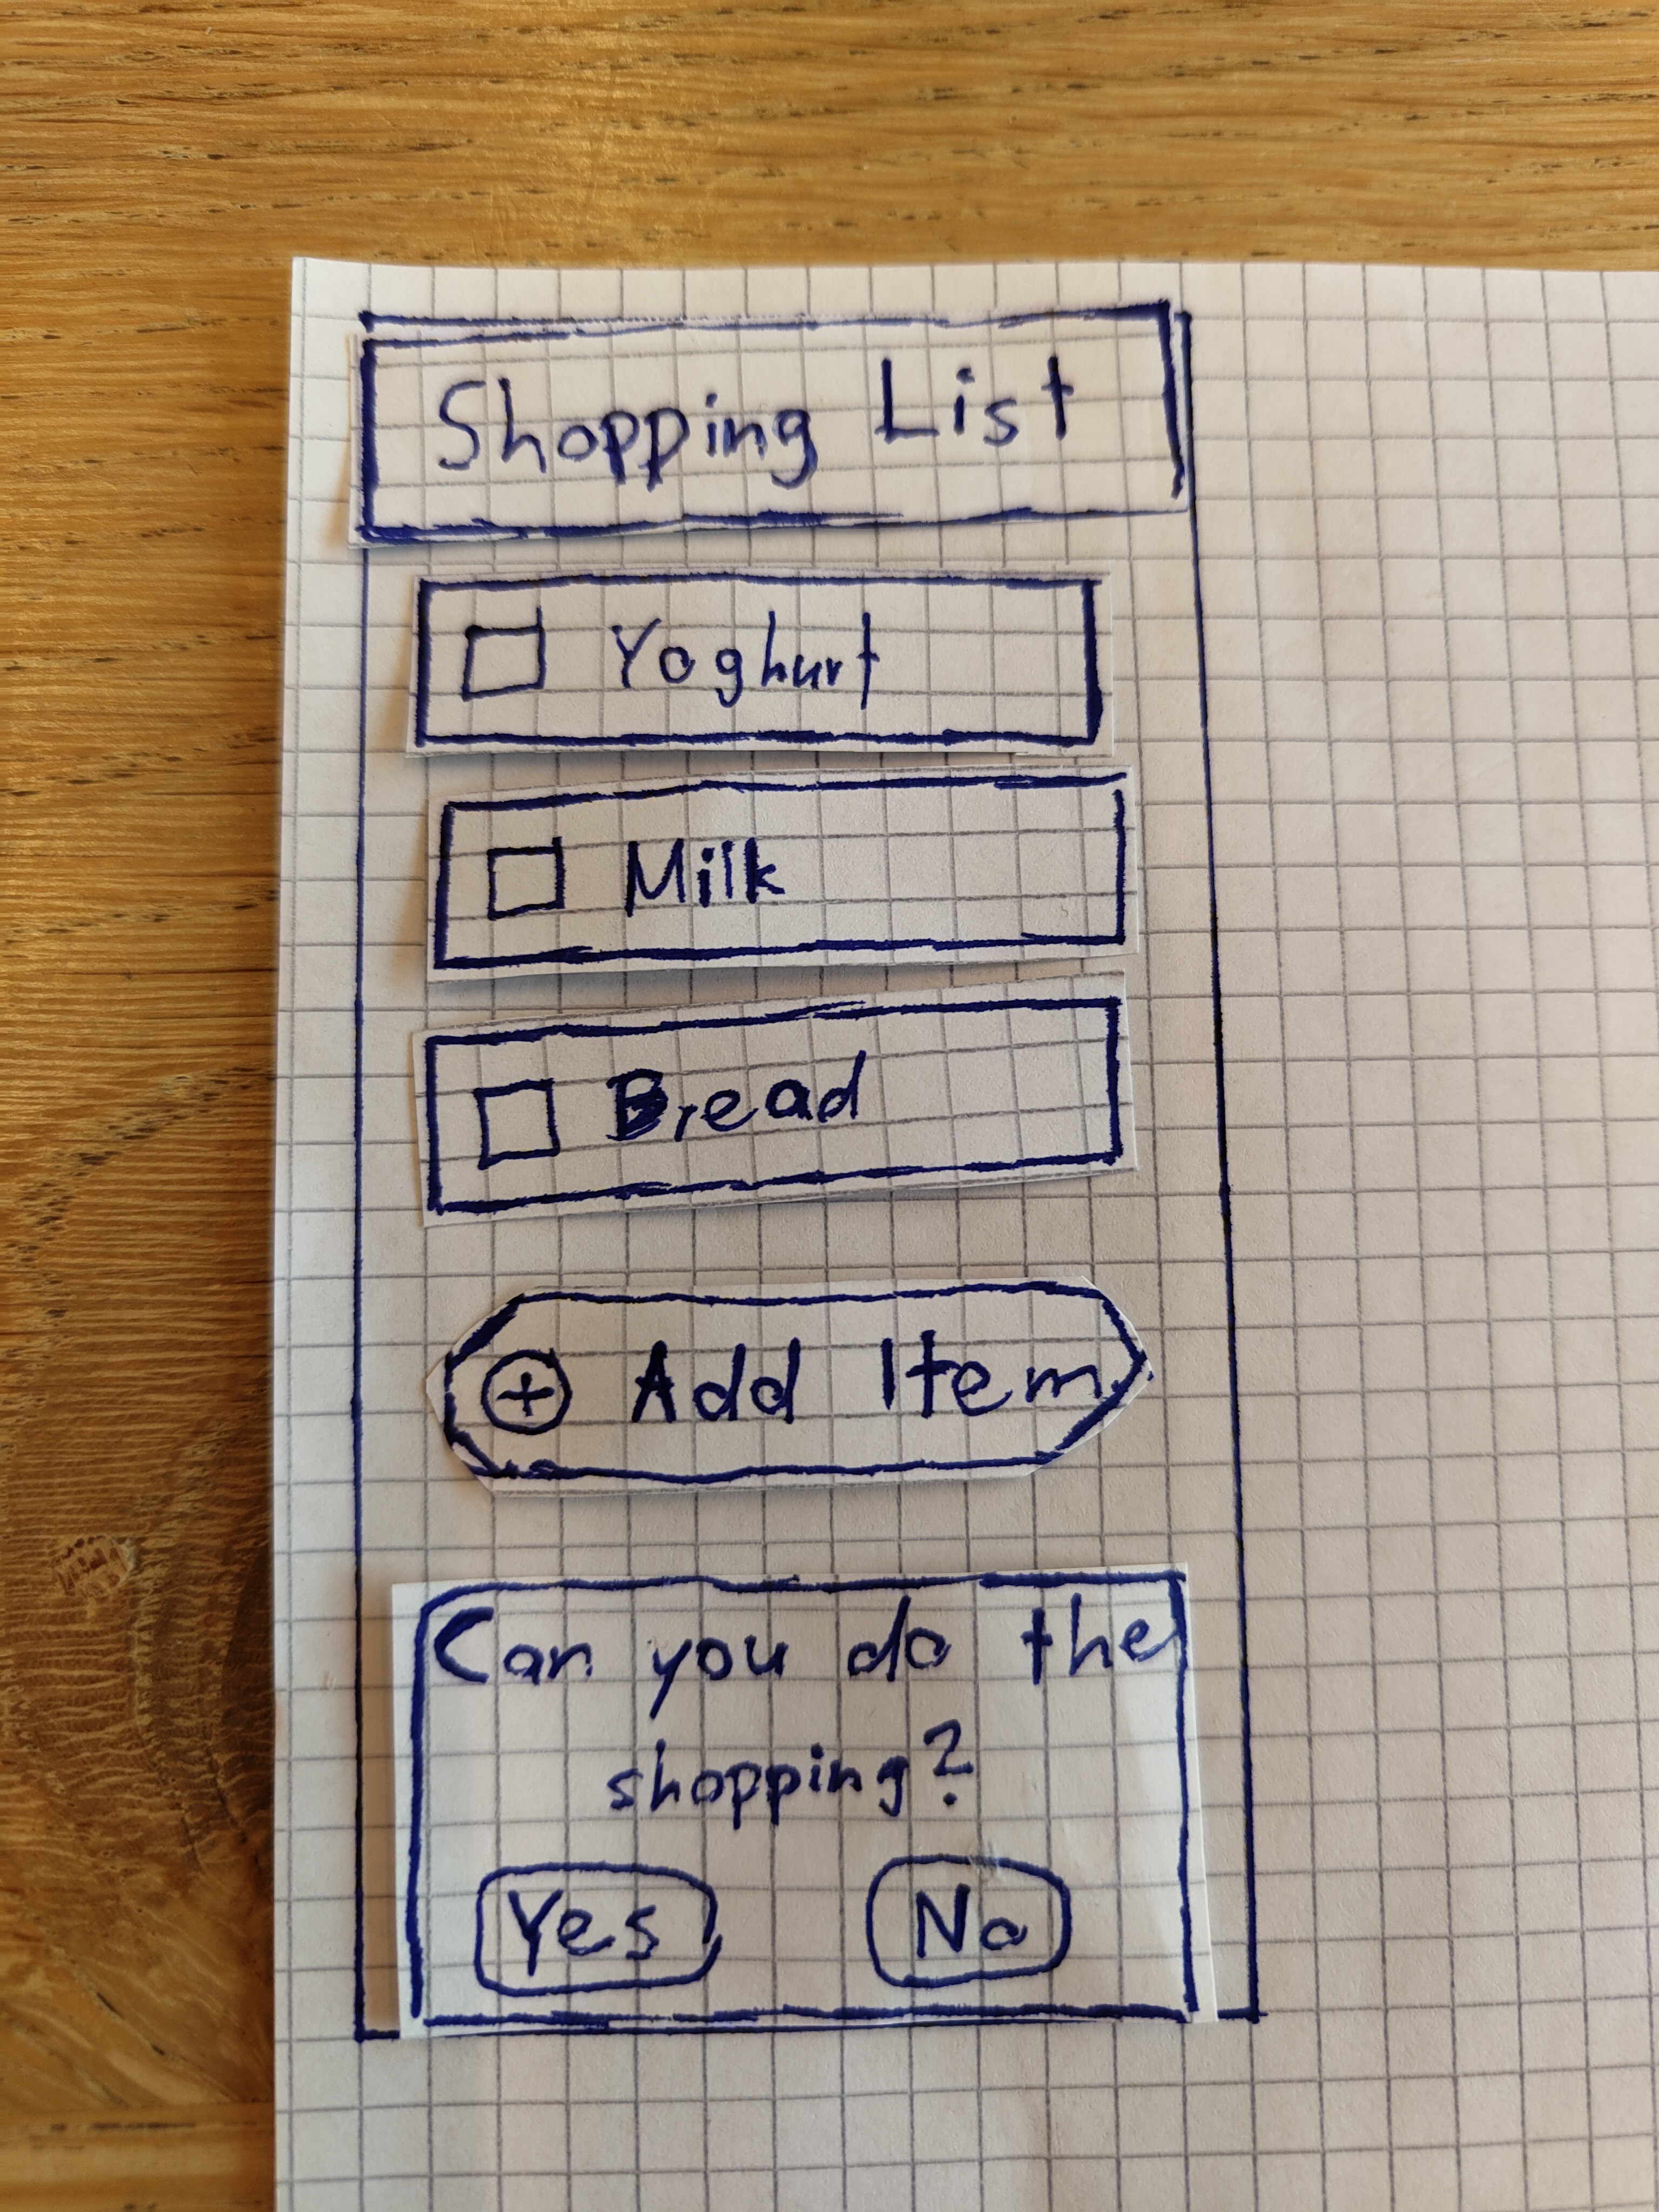 Shopping List
Yoghurt
Milk
Bread
Add Item
Can you do the
shopping?
Yes No